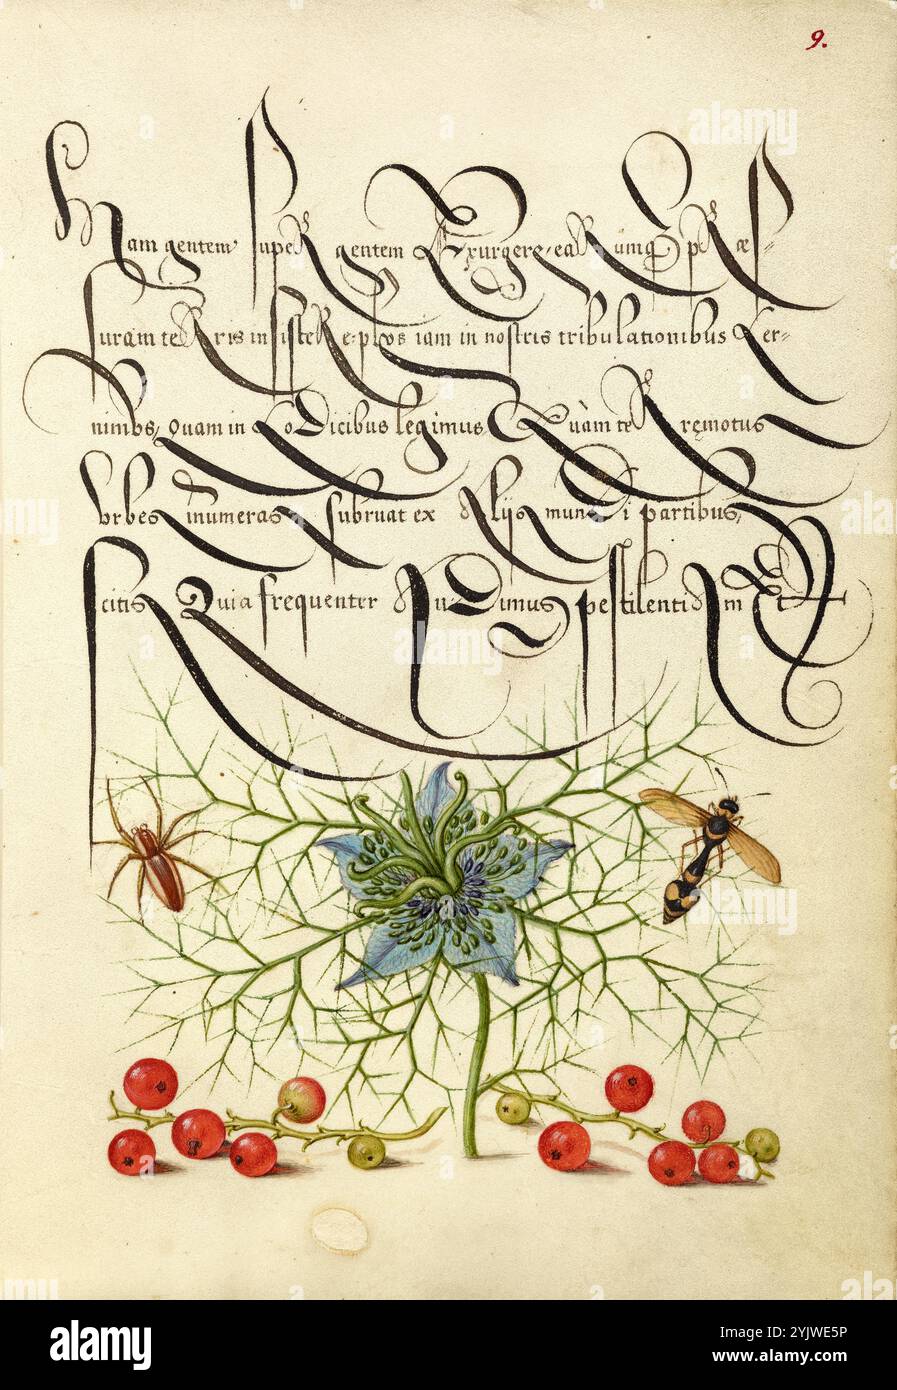 9.
Nam gentem super gentem Exurgere, earumq3 pRæs-
suram terris insistere: plus iam in nostris tribulationibus Cer-
nimus, Quam in Codicibus legimus. Quàm terręmotus
Vrbes inumeras subruat ex Alijs mundi partibus,
scitis Quia frequenter Audimus, pestilentiam Et
a alamy
alamy
Image ID: 2YJWE5P
www.alamy.com